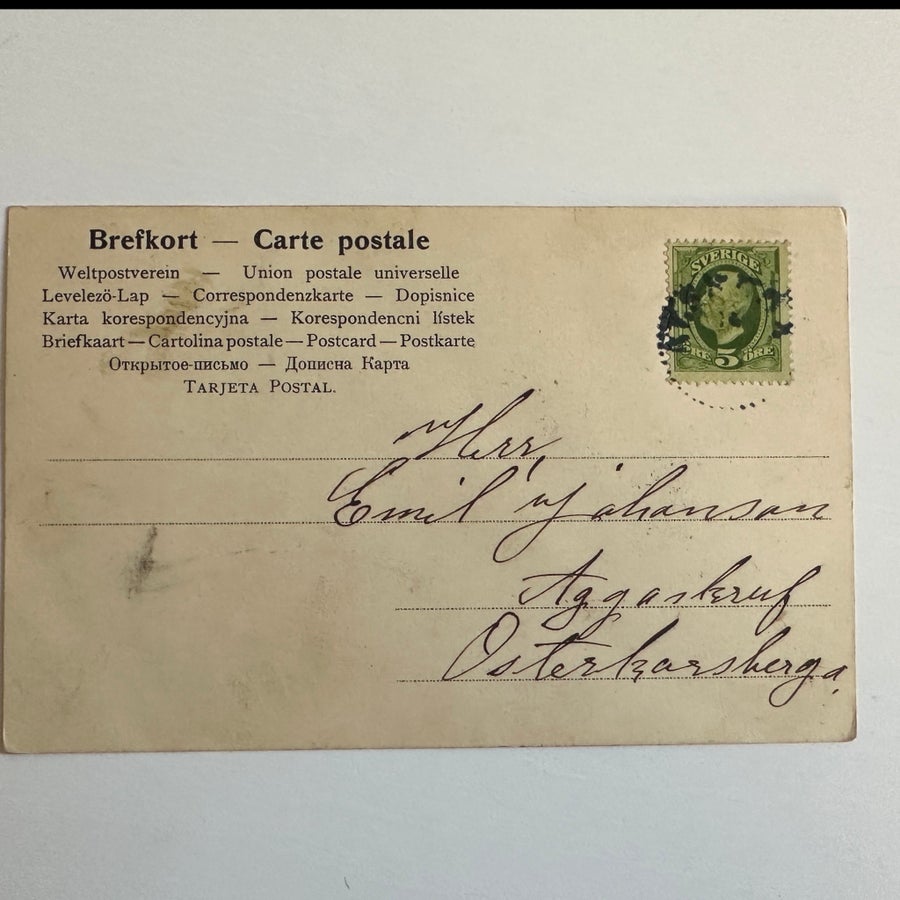 Brefkort — Carte postale
Weltpostverein — Union postale universelle
Levelezö-Lap — Correspondenzkarte — Dopisnice
Karta korespondencyjna — Korespondencni lístek
Briefkaart — Cartolina postale — Postcard — Postkarte
Открытое-письмо — Дописна Карта
TARJETA POSTAL.
SVERIGE
ÖRE 5 ÖRE
Herr,
Emil Johanson
Aggaskruf
Osterkorsberga,